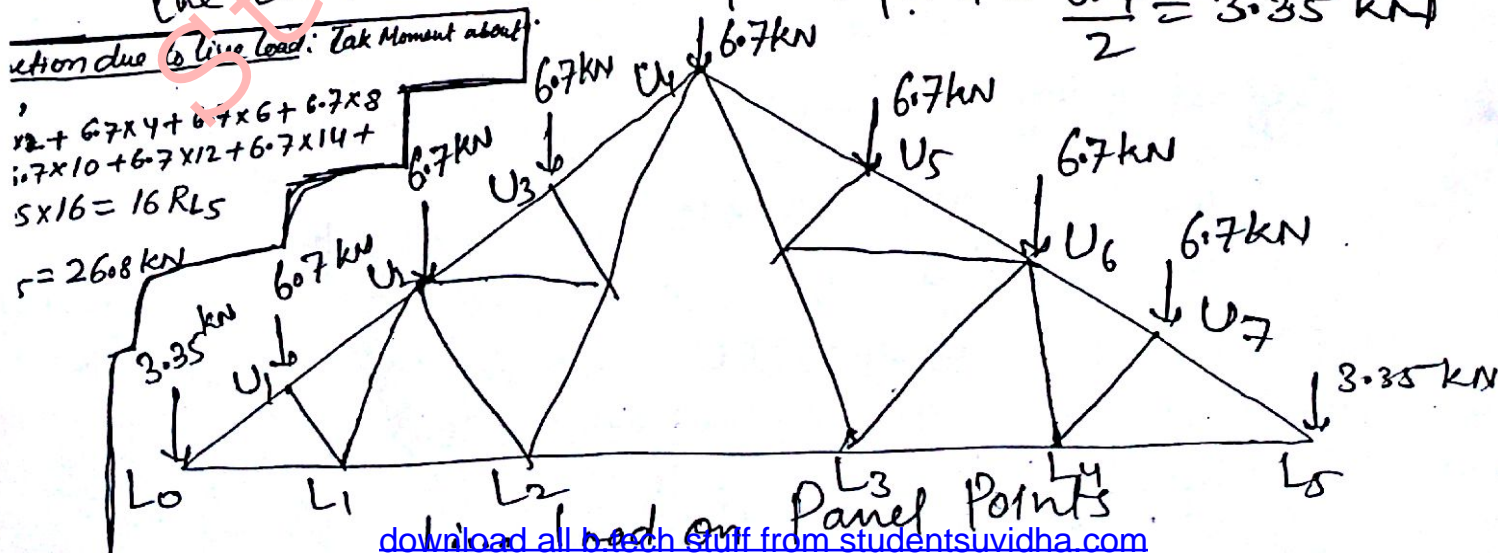 6.7 / 2 = 3.35 kN
ction due to live load: Tak Moment about
x2 + 6.7x4 + 6.7x6 + 6.7x8
.7x10 + 6.7x12 + 6.7x14 +
5x16 = 16 RL5
5 = 26.8 kN
3.35 kN
6.7 kN
6.7 kN
6.7 kN
6.7 kN
6.7 kN
6.7 kN
6.7 kN
3.35 kN
U1
U2
U3
U4
U5
U6
U7
L0 L1 L2 L3 L4 L5
Live load on Panel Points.
download all b.tech stuff from studentsuvidha.com